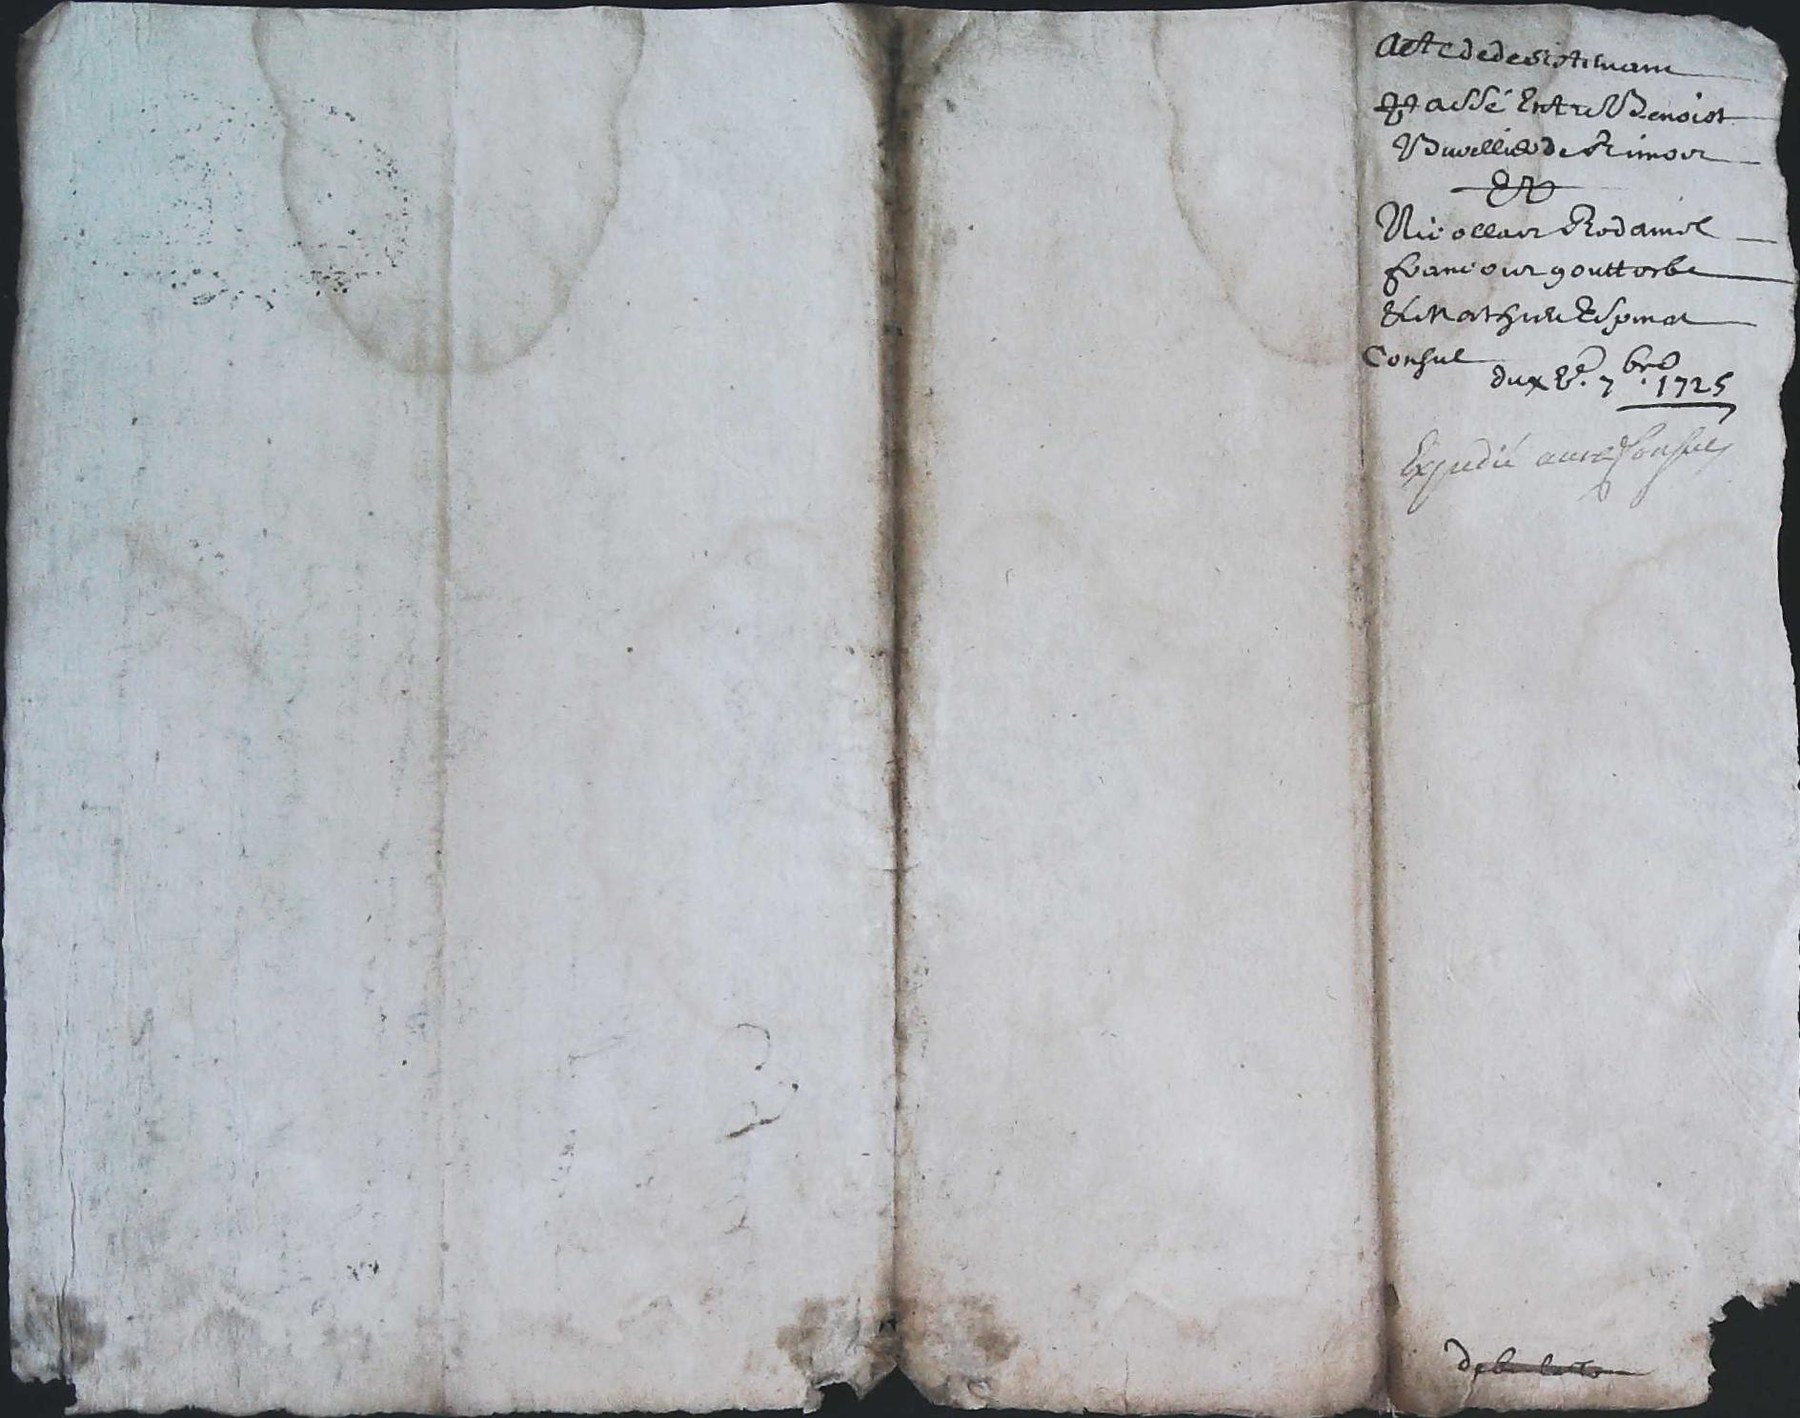 Acte de desistemant
passé Entre Benoist
Buvellio de Rimoir
Et
Nicollas Rodamel
francois gouttorbe
Et Mathieu Espinas
Consul
du xve. 7bre. 1725
Expedié aux Consuls